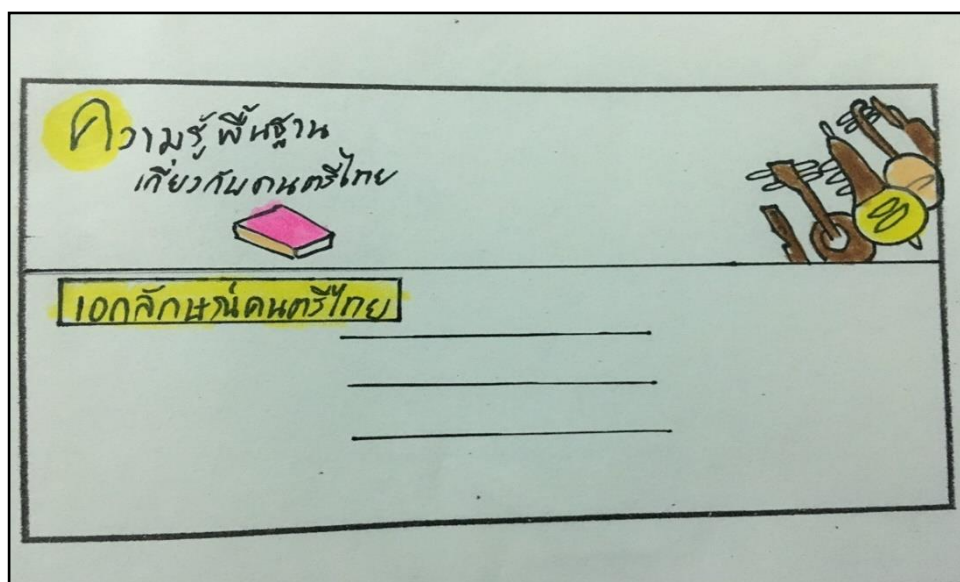 ความรู้พื้นฐาน
เกี่ยวกับดนตรีไทย
เอกลักษณ์ดนตรีไทย